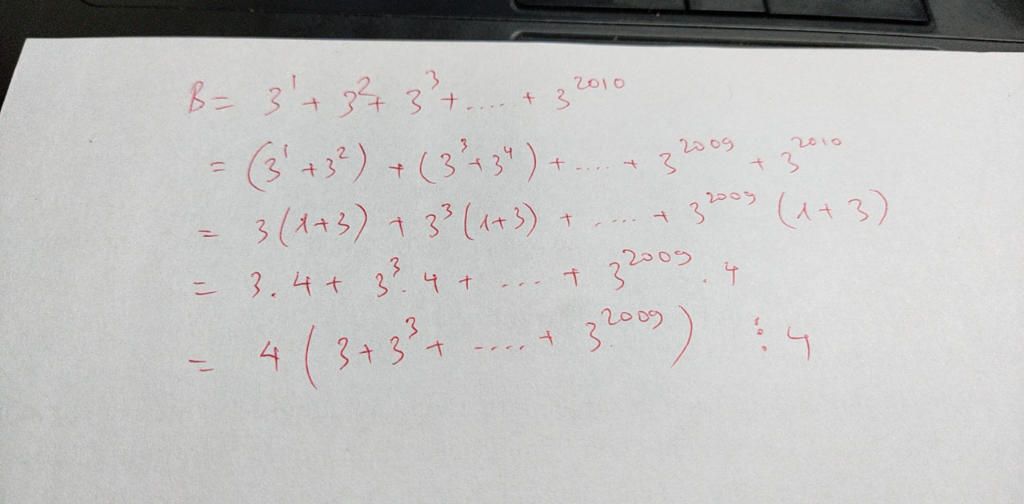 B = 3¹ + 3² + 3³ + ..... + 3²⁰¹⁰
= (3¹ + 3²) + (3³ + 3⁴) + .... + 3²⁰⁰⁹ + 3²⁰¹⁰
= 3(1+3) + 3³(1+3) + ..... + 3²⁰⁰⁹(1+3)
= 3.4 + 3³.4 + .... + 3²⁰⁰⁹.4
= 4(3 + 3³ + ..... + 3²⁰⁰⁹) ⋮ 4